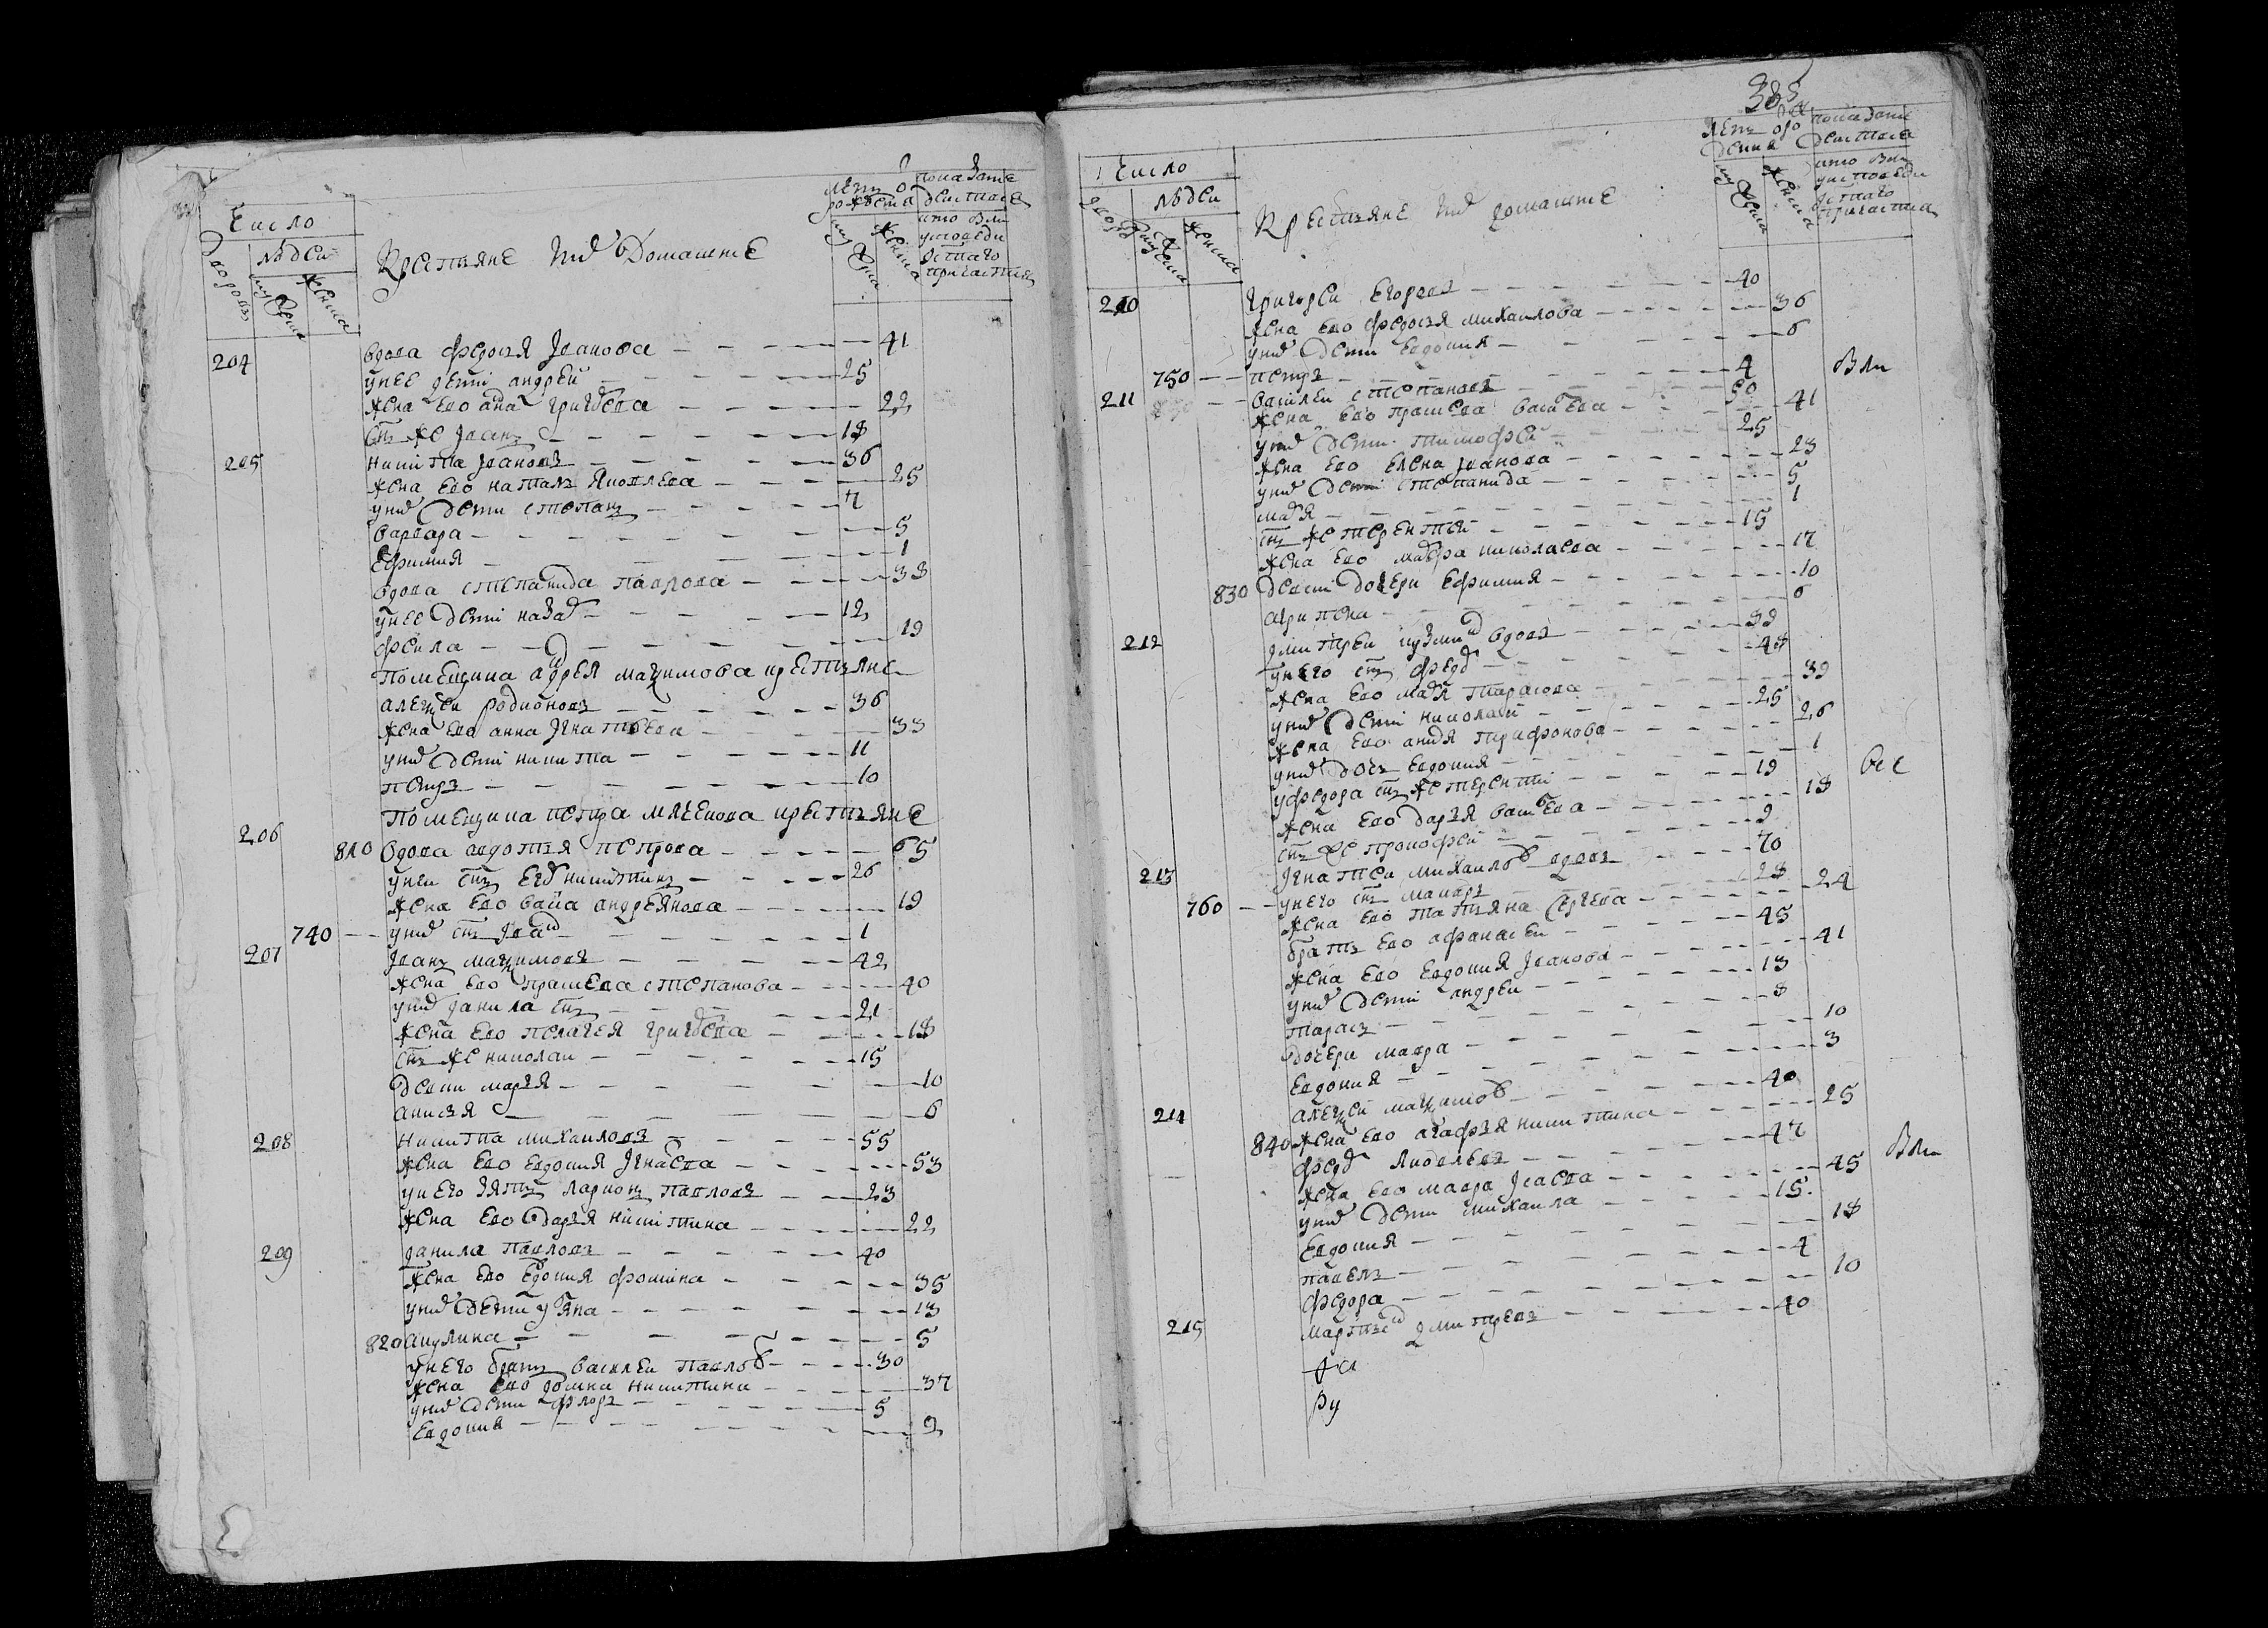 Число
Дворовъ
Людей
мужеска
женска
Крестьяне ихъ Домашние
летъ от рождения
мужеска
женска
показание действа кто были у исповеди и святаго причастия
204 вдова федосья Iванова 41
у нее дети андрей 25
жена ево ана григорева 22
сынъ же Iванъ 18
205 никита Iвановъ 36
жена ево наталья Яковлева 25
у них дети степанъ 7
варвара 5
Ефимия 1
вдова степанида павлова 33
у нее дети назаръ 12
фекла 19
Помещика андрея максимова крестьяне
алексей родионовъ 36
жена ево анна Iгнатьева 33
у них дети никита 11
петръ 10
Помещика петра мячкова крестьяне
206 810 вдова авдотья петрова 65
у неи сынъ Егоръ никитинъ 26
жена ево васа андреянова 19
740 у них сынъ Iванъ 1
207 Iванъ максимовъ 42
жена ево прасковья степанова 40
у них данила сынъ 21
жена ево пелагея григорева 18
сынъ же николаи 15
девки марья 10
анисья 6
208 никита михаиловъ 55
жена ево евдокия Iгнатева 53
у него зять ларионъ павловъ 23
жена ево дарья никитина 22
209 данила павловъ 40
жена ево Евдокия фомина 35
у них дети ульяна 13
820 акулина 5
у него братъ василеи павловъ 30
жена ево домна никитина 37
у них дети флоръ 5
Евдокия 2
385
Число
дворовъ
Людей
мужеска
женска
Крестьяне ихъ домашние
летъ от рождения
мужеска
женска
показание действа кто были у исповеди и святаго причастия
210 григореи Егоровъ 40
жена ево федосья михаилова 36
у них дети евдокия 6
750 петръ 4 были
211 василеи степановъ 50
жена ево прасковья васильева 41
у них дети тимофей 25
жена ево елена Iванова 23
у них дети степанида 5
марья 1
сынъ же терентей 15
жена ево мавра николаева 17
830 девки дочери Ефимия 10
агрипена 6
212 дмитреи кузминъ вдовъ 99
у него сынъ федоръ 48
жена ево марья тарасова 39
у них дети николай 25
жена ево анисья трифонова 26
у них дочь евдокия 1
у федора сынъ же терентий 19 все
жена ево дарья васильева 18
сынъ же прокофей 9
213 Iгнатеи михаиловъ вдовъ 70
760 у него сынъ макаръ 28
жена ево татьяна сергева 24
братъ ево афанасеи 45
жена ево Евдокия Iванова 41
у них дети андреи 13
тарасъ 8
дочери мавра 10
Евдокия 3
214 алексей максимовъ 40
840 жена ево агафья никитина 25
федоръ яковлевъ 47
жена ево мавра Iсаева 45 были
у них дети михаила 15
Евдокия 18
павелъ 4
федора 10
215 мартынъ дмитревъ 40
ру